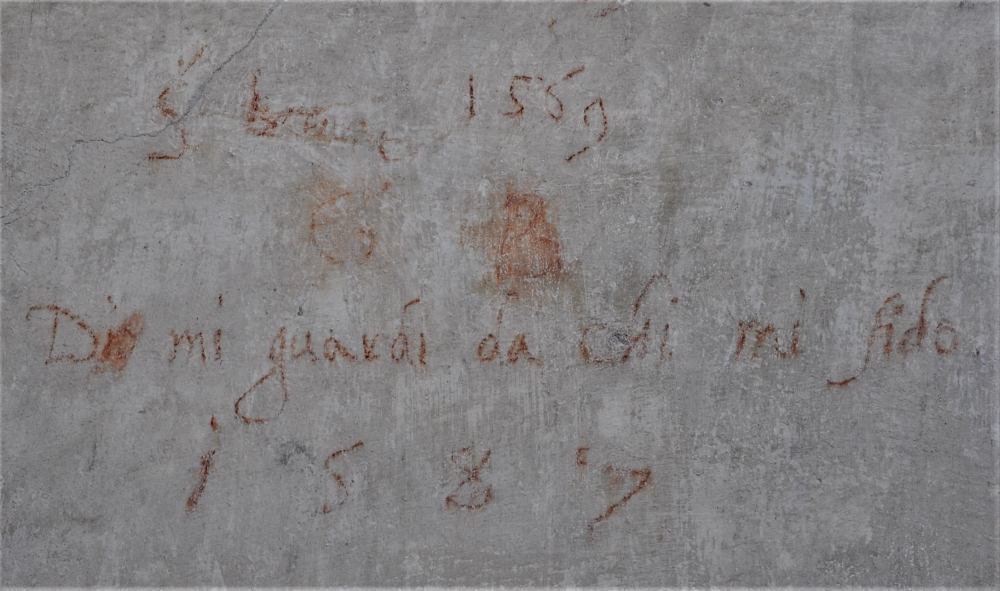 1569
B
Dio mi guardi da chi mi fido
1587